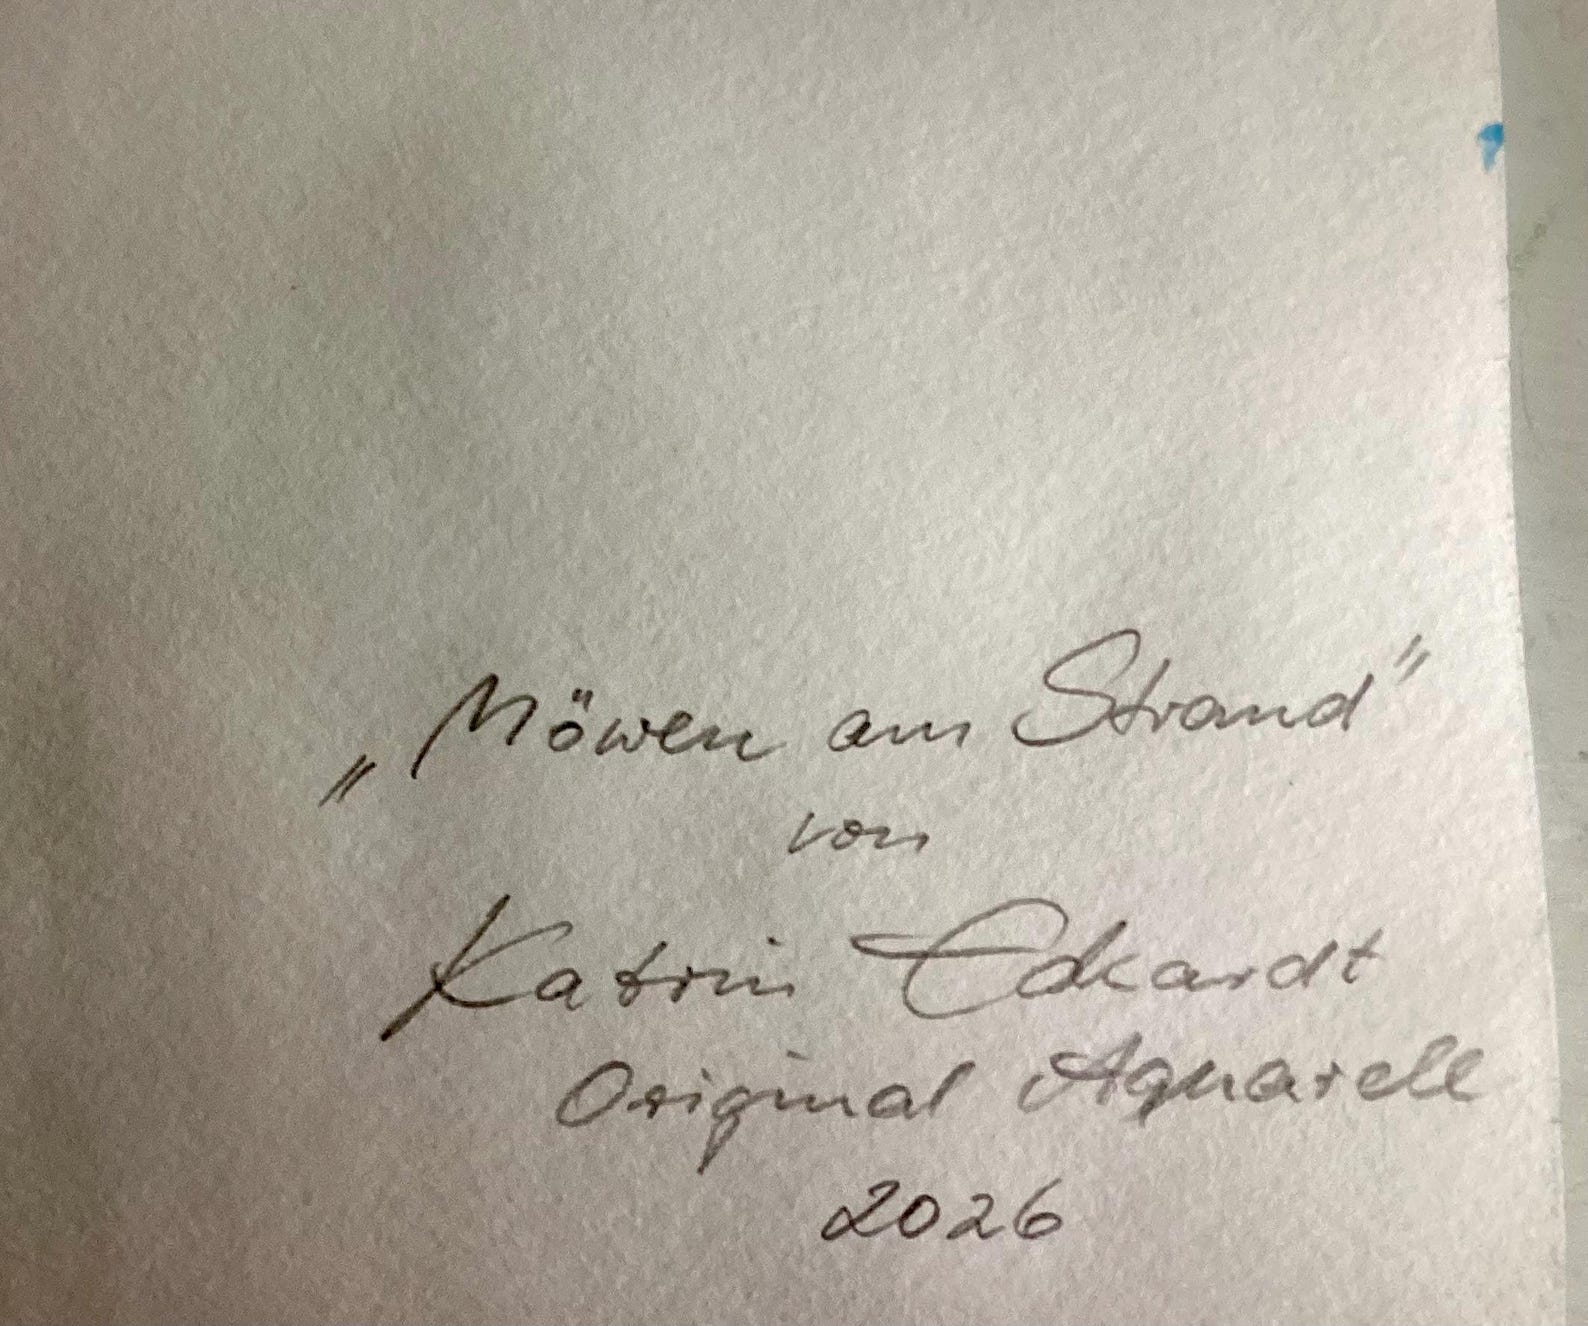 „Möwen am Strand"
von
Katrin Eckardt
Original Aquarell
2026